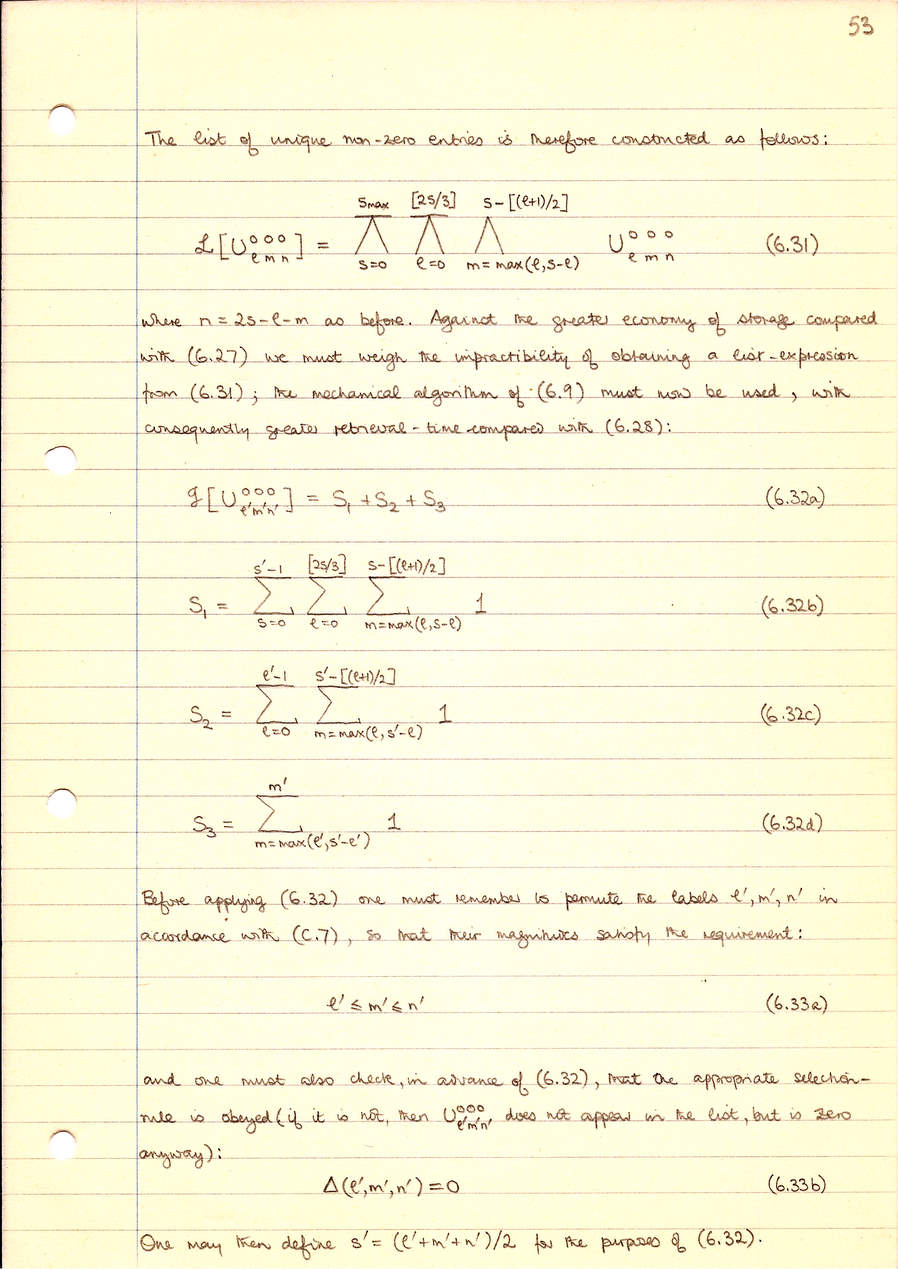 53
The list of unique non-zero entries is therefore constructed as follows:
Smax [2S/3] S-[(ℓ+1)/2]
ℒ[U⁰⁰⁰ℓmn] = Λ Λ Λ U⁰⁰⁰ℓmn (6.31)
S=0 ℓ=0 m=max(ℓ,S-ℓ)
where n = 2S-ℓ-m as before. Against the greater economy of storage compared
with (6.27) we must weigh the impractibility of obtaining a list-expression
from (6.31); the mechanical algorithm of (6.9) must now be used, with
consequently greater retrieval-time compared with (6.28):
𝒥[U⁰⁰⁰ℓ'm'n'] = S₁ + S₂ + S₃ (6.32a)
S'-1 [2S/3] S-[(ℓ+1)/2]
S₁ = Σ Σ Σ 1 (6.32b)
S=0 ℓ=0 m=max(ℓ,S-ℓ)
ℓ'-1 S'-[(ℓ+1)/2]
S₂ = Σ Σ 1 (6.32c)
ℓ=0 m=max(ℓ,S'-ℓ)
m'
S₃ = Σ 1 (6.32d)
m=max(ℓ',S'-ℓ')
Before applying (6.32) one must remember to permute the labels ℓ',m',n' in
accordance with (C.7), so that their magnitudes satisfy the requirement:
ℓ' ≤ m' ≤ n' (6.33a)
and one must also check, in advance of (6.32), that the appropriate selection-
rule is obeyed (if it is not, then U⁰⁰⁰ℓ'm'n' does not appear in the list, but is zero
anyway):
Δ(ℓ',m',n') = 0 (6.33b)
One may then define S' = (ℓ'+m'+n')/2 for the purposes of (6.32).